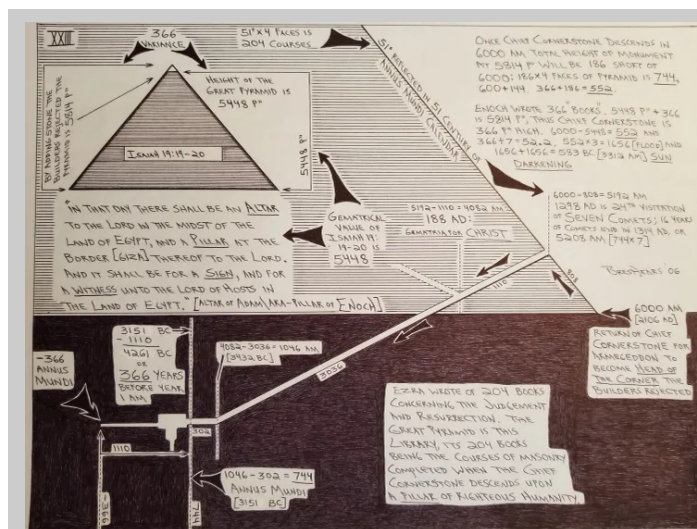 XXIII
366
VARIANCE
51° X 4 FACES IS
204 COURSES
BY ADDING STONE THE
BUILDERS REJECTED THE
PYRAMID IS 5814 P"
HEIGHT OF THE
GREAT PYRAMID IS
5448 P"
5448 P"
ISAIAH 19:19-20
51° REFLECTED IN 51 CENTURY OF
ANNUS MUNDI CALENDAR
ONCE CHIEF CORNERSTONE DESCENDS IN
6000 AM TOTAL HEIGHT OF MONUMENT
AT 5814 P" WILL BE 186 SHORT OF
6000: 186X4 FACES OF PYRAMID IS 744,
600+144. 366+186=552.
ENOCH WROTE 366 "BOOKS". 5448 P"+366
IS 5814 P", THUS CHIEF CORNERSTONE IS
366 P" HIGH. 6000-5448=552 AND
366÷7=52.2. 552X3=1656 [FLOOD] AND
1656+1656=583 BC [3312 AM] SUN
DARKENING
"IN THAT DAY THERE SHALL BE AN ALTAR
TO THE LORD IN THE MIDST OF THE
LAND OF EGYPT, AND A PILLAR AT THE
BORDER [GIZA] THEREOF TO THE LORD.
AND IT SHALL BE FOR A SIGN, AND FOR
A WITNESS UNTO THE LORD OF HOSTS IN
THE LAND OF EGYPT." [ALTAR OF ADAM/AKA-PILLAR OF ENOCH]
GEMATRICAL
VALUE OF
ISAIAH 19:
19-20 IS
5448
5192-1110=4082 AM
188 AD:
GEMATRIA FOR CHRIST
6000-808=5192 AM
1298 AD IS 24TH VISITATION
OF SEVEN COMETS; 16 YEARS
OF COMETS END IN 1314 AD OR
5208 AM [744X7]
BRESHEARS '06
1110
808
6000 AM
[2106 AD]
RETURN OF CHIEF
CORNERSTONE FOR
ARMAGEDDON TO
BECOME HEAD OF
THE CORNER THE
BUILDERS REJECTED
3151 BC
-1110
4261 BC
OR
366 YEARS
BEFORE YEAR
1 AM
4082-3036=1046 AM
[3432 BC]
-366
ANNUS
MUNDI
3036
302
1110
-366
744
1046-302=744
ANNUS MUNDI
[3151 BC]
EZRA WROTE OF 204 BOOKS
CONCERNING THE JUDGEMENT
AND RESURRECTION. THE
GREAT PYRAMID IS THIS
LIBRARY, ITS 204 BOOKS
BEING THE COURSES OF MASONRY
COMPLETED WHEN THE CHIEF
CORNERSTONE DESCENDS UPON
A PILLAR OF RIGHTEOUS HUMANITY.